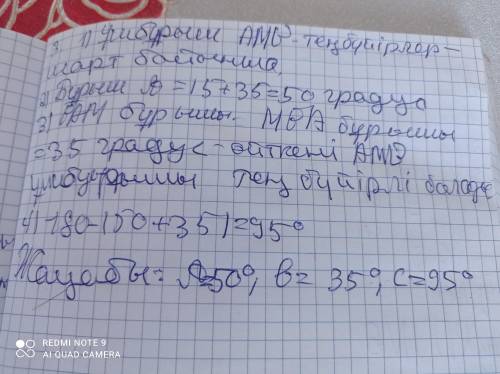 3. 1) Үшбұрыш АМВ-теңбүйірлер-
шарт бойынша
2) Бұрыш А=15+35=50 градус
3) ВАМ бұрышы. МВА бұрышы
=35 градус-өйткені АМВ
үшбұрышы тең бүйірлі болады
4) 180-(50+35)=95°
Жауабы: А=50°, В=35°, С=95°
REDMI NOTE 9
AI QUAD CAMERA